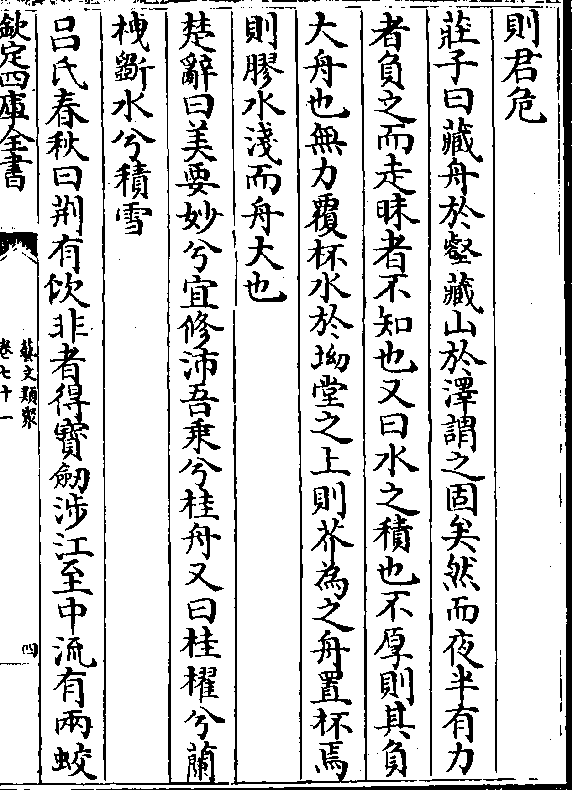 則君危
莊子曰藏舟於壑藏山於澤謂之固矣然而夜半有力
者負之而走昧者不知也又曰水之積也不厚則其負
大舟也無力覆杯水於坳堂之上則芥為之舟置杯焉
則膠水淺而舟大也
楚辭曰美要妙兮宜修沛吾乘兮桂舟又曰桂櫂兮蘭
栧斵水兮積雪
吕氏春秋曰荆有佽非者得寳劒涉江至中流有兩蛟
欽定四庫全書
藝文類聚
卷七十一
四